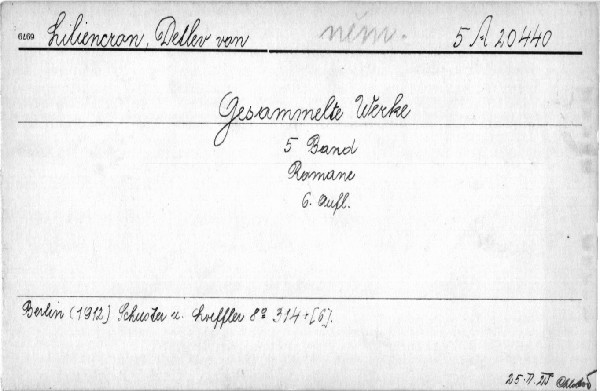 6979 Liliencron, Detlev von něm. 5 A 20440
Gesammelte Werke
5 Band
Romane
6. Aufl.
Berlin (1912) Schuster u. Loeffler 8° 314+[6].
25.II.